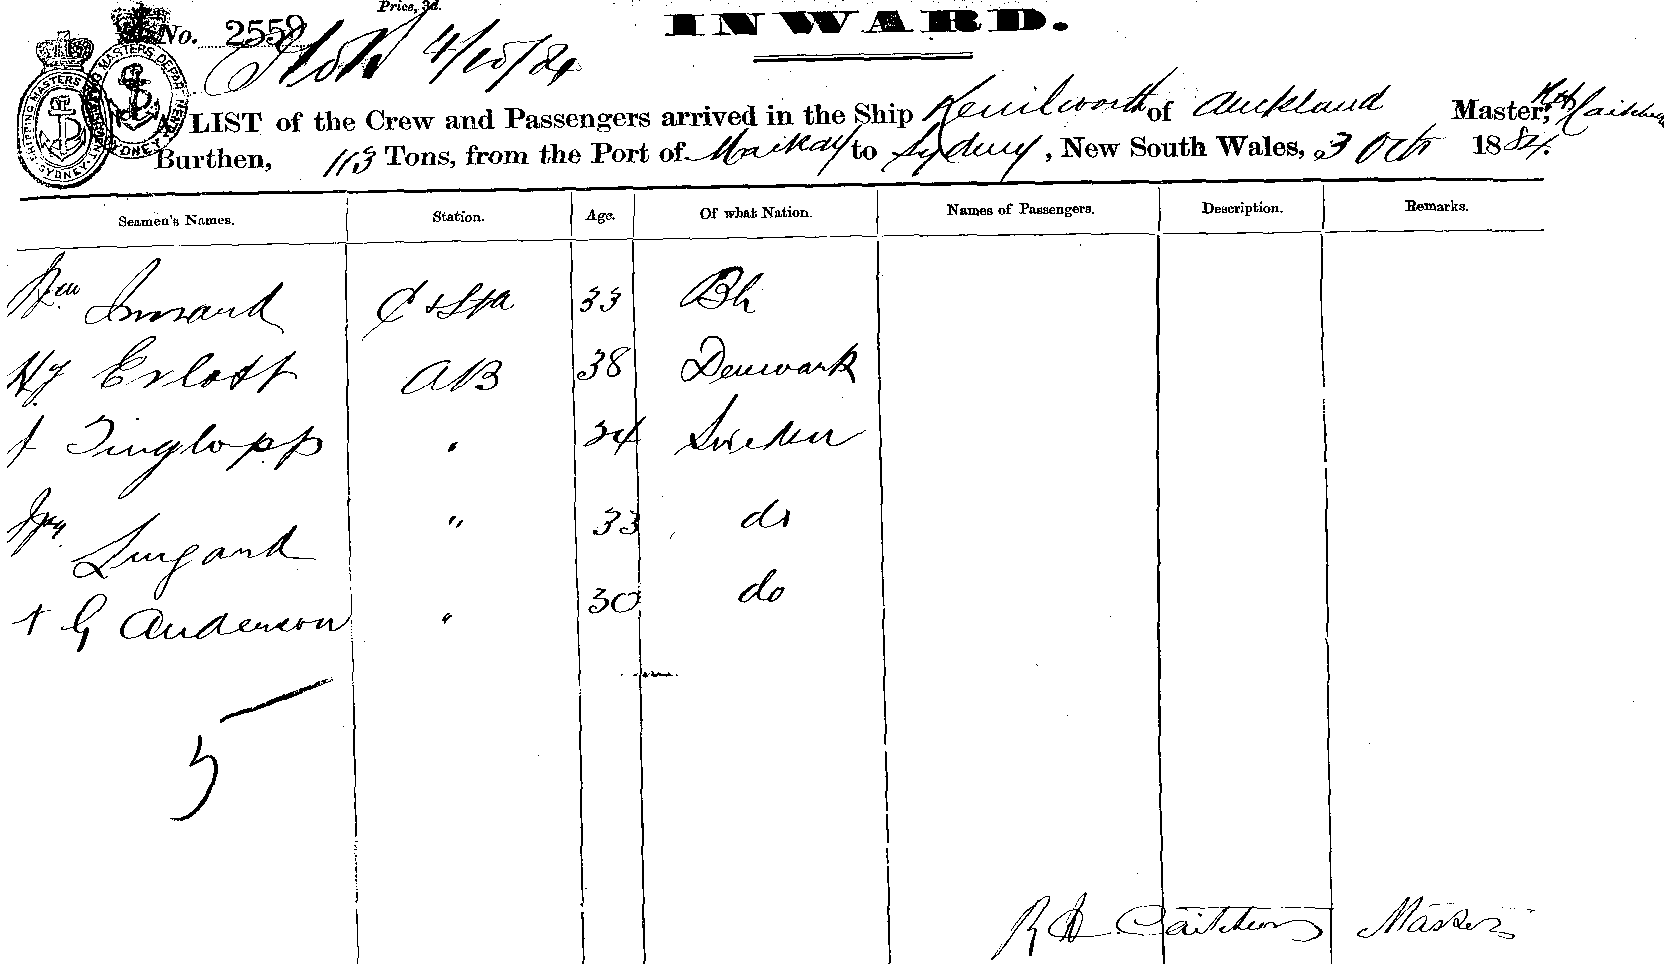 Price, 3d.
No. 2559
INWARD.
4/10/84
A LIST of the Crew and Passengers arrived in the Ship Kenilworth of Auckland Master, R H Caitcheon
Burthen, 113 Tons, from the Port of Maikay to Sydney, New South Wales, 3 Oct 1884.
Seamen's Names. Station. Age. Of what Nation. Names of Passengers. Description. Remarks.
Wm 33 Bh
Hy AB 38 Denmark
J " 34 Sweden
" 33 do
G Anderson " 30 do
5
R H Caitcheon Master
SHIPPING MASTERS
SYDNEY